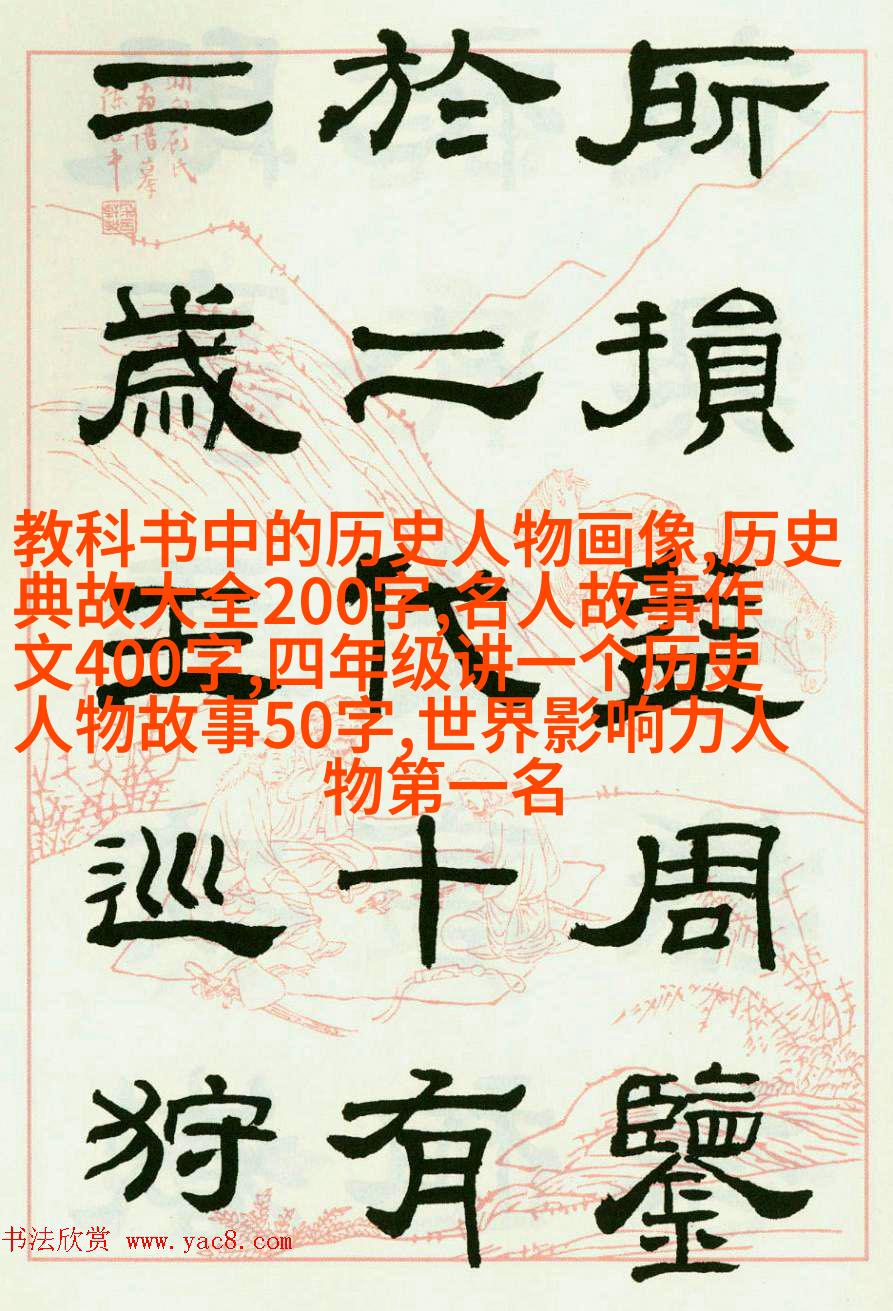 所損益周鑒
於二代十有
二歲王巡狩
教科书中的历史人物画像,历史
典故大全200字,名人故事作
文400字,四年级讲一个历史
人物故事50字,世界影响力人
物第一名
书法欣赏 www.yac8.com